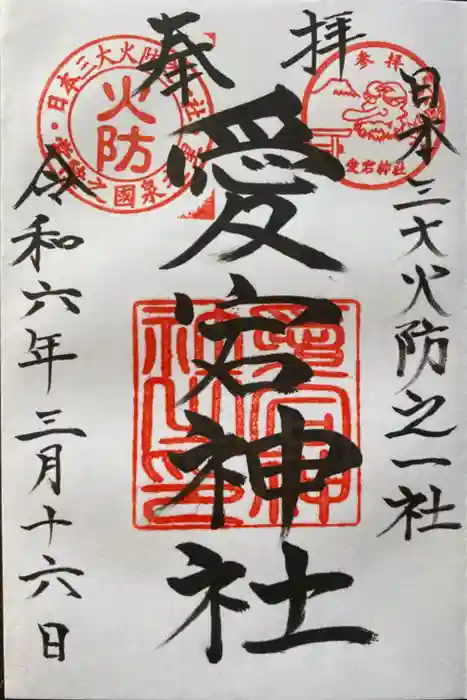 奉拝
日本三大火防之一社
愛宕神社
令和六年三月十六日
火防
参拝
愛宕神社